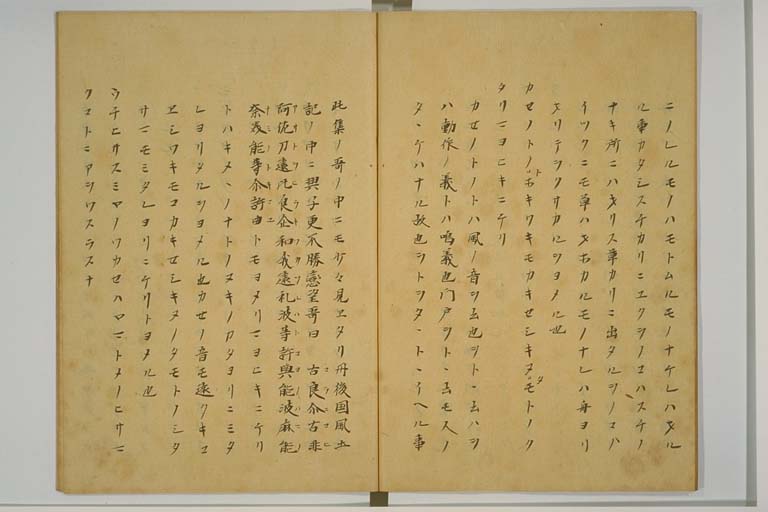 ニノレルモノハモトムルモノナケレハキル
ル事カタシスチカリニエクシノエハスケノ
ナキ所ニハキリス草カリニ出タルシノエハ
イツクニモ草ハオホカルモノナレハ舟ヨリ
メリテシクサカルシヨメル也
カセノトノトホキワキモカキセシキヌタモトノク
タリマヨヒキニケリ
カセノトノトハ風ノ音ヲ云也ヲトヽ云ハヲ
ハ動作ノ義トハ鳴義也門戸ヲトヽ云モ又ノ
タヽケハナル故也シトヲタヽトヽイヘル事
此集ノ哥ノ中ニモ少々見エタリ丹後国風土
記ノ中ニ與子更不勝戀望哥曰 古良尓古非
阿佐刀遠比良企和我遠礼波等許與能波麻能
奈美能等尓許由トモヨメリマヨヒキニケリ
トハキヌヽノナトノヌキノカタヨリニミタ
レヨリタルシヨメル也カセノ音モ遠クキコ
エシワキモコカキセシキヌノタモトノシタ
サマモミタレヨリニケリトヨメル也
ウチヒサスミヤノワカセハヤマトメノヒサマ
クコトニアシワスラスナ